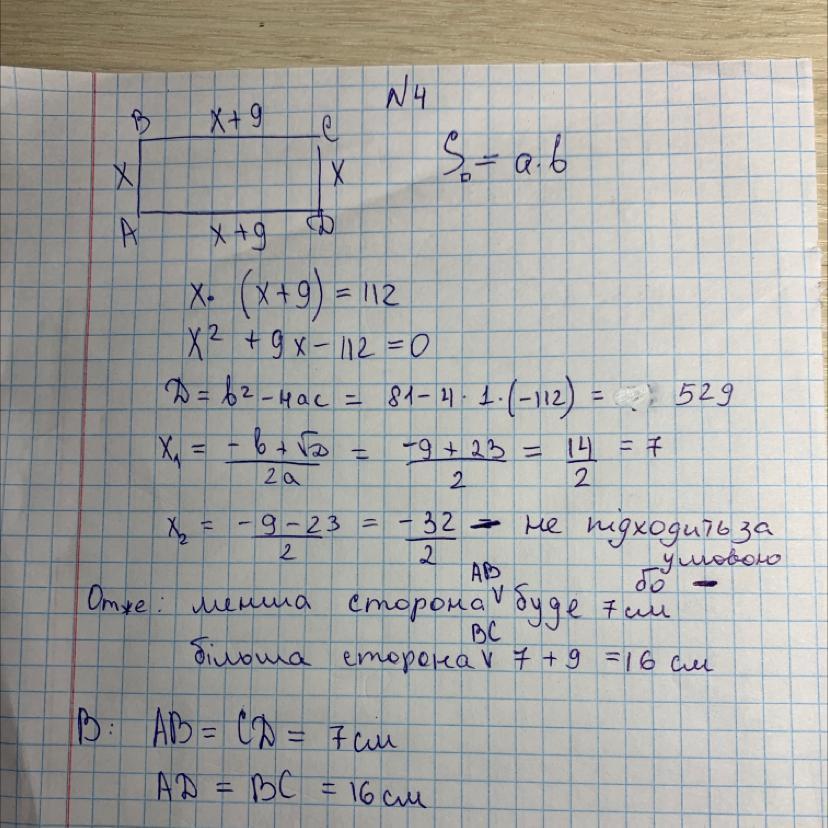 N4
B x+9 C
x x
A x+9 D
S▫ = a·b
x· (x+9) = 112
x² + 9x - 112 = 0
D = b² - 4ac = 81 - 4 · 1 · (-112) = 529
x₁ = (-b + √D)/2a = (-9 + 23)/2 = 14/2 = 7
x₂ = (-9 - 23)/2 = (-32)/2 - не підходить за
умовою
бо -
Отже: менша сторона AB буде 7 см
більша сторона BC 7 + 9 = 16 см
В: AB = CD = 7 см
AD = BC = 16 см